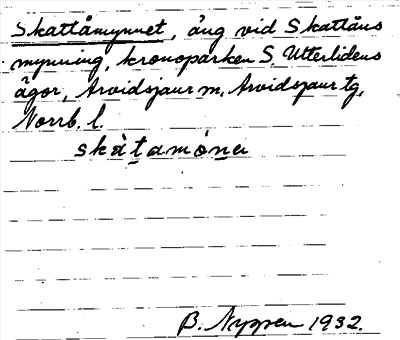 Skattåmynnet, äng vid Skattåns
mynning, kronoparken S. Utterlidens
ägor, Arvidsjaur m. Arvidsjaur tg,
Norrb. l.
skàtamòna
B. Nygren 1932.